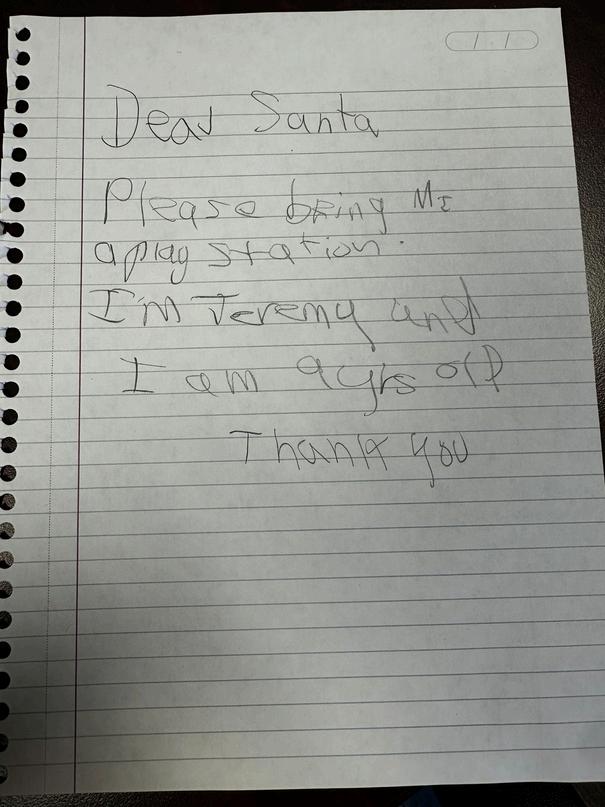 Dear Santa
Please bring Me
a play station.
I'm Jeremy and
I am 9 yrs old
Thank you